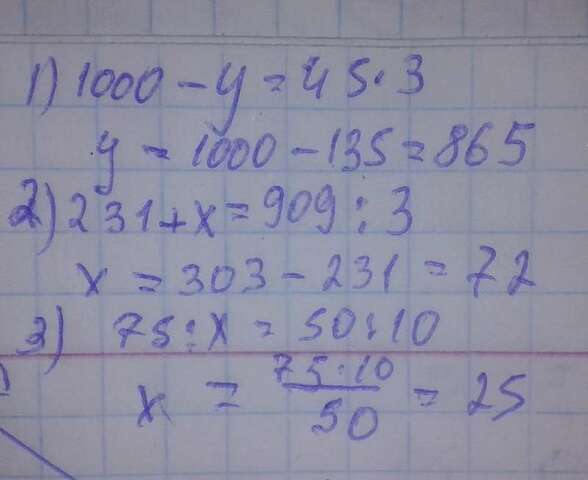 1) 1000 - y = 45 · 3
y = 1000 - 135 = 865
2) 231 + x = 909 : 3
x = 303 - 231 = 72
3) 75 : x = 50 : 10
x = 75 · 10 / 50 = 25